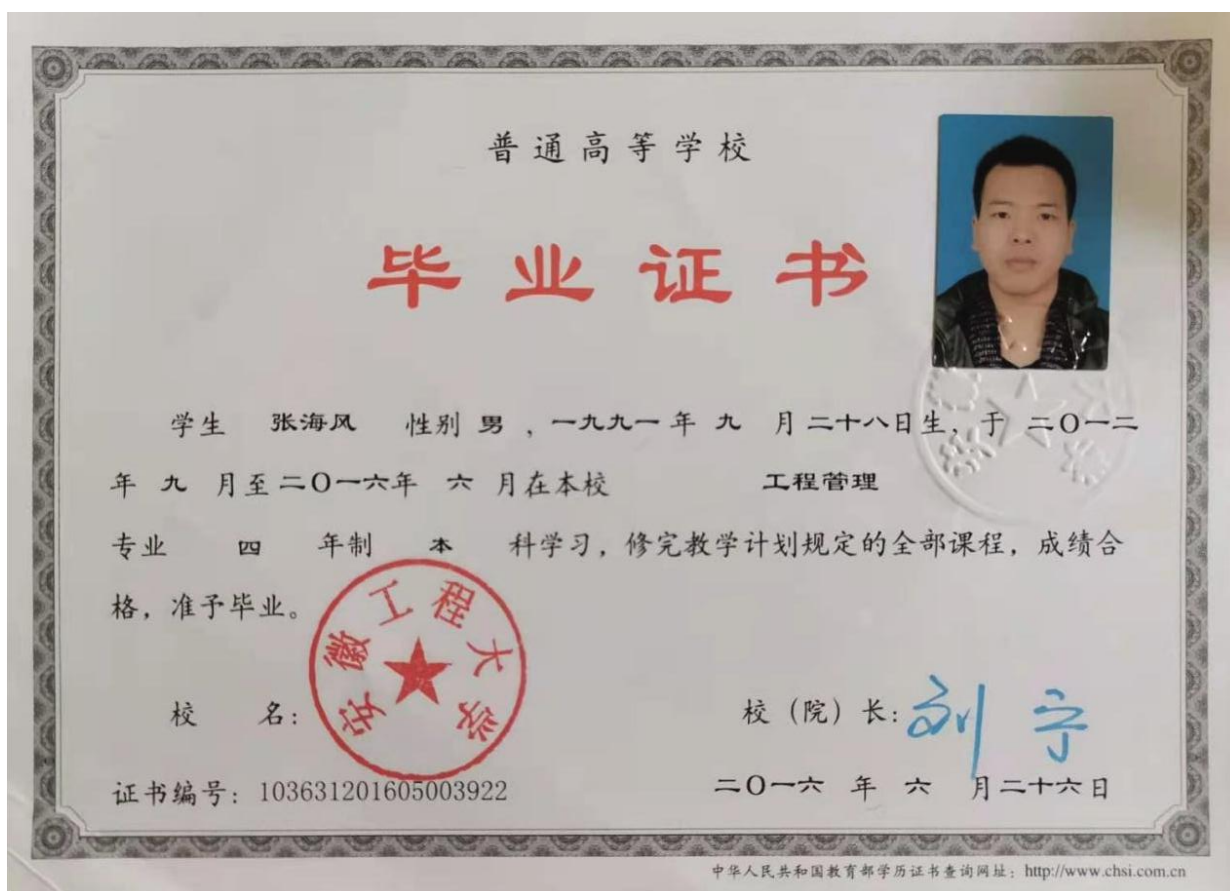 普通高等学校
毕业证书
学生 张海风 性别 男 , 一九九一 年 九 月 二十八日生, 于 二〇一二
年 九 月至 二〇一六年 六 月在本校 工程管理
专业 四 年制 本 科学习, 修完教学计划规定的全部课程, 成绩合
格, 准予毕业。
安徽工程大学
校 名: 校 (院) 长: 刘宁
证书编号: 103631201605003922 二〇一六 年 六 月二十六日
中华人民共和国教育部学历证书查询网址: http://www.chsi.com.cn